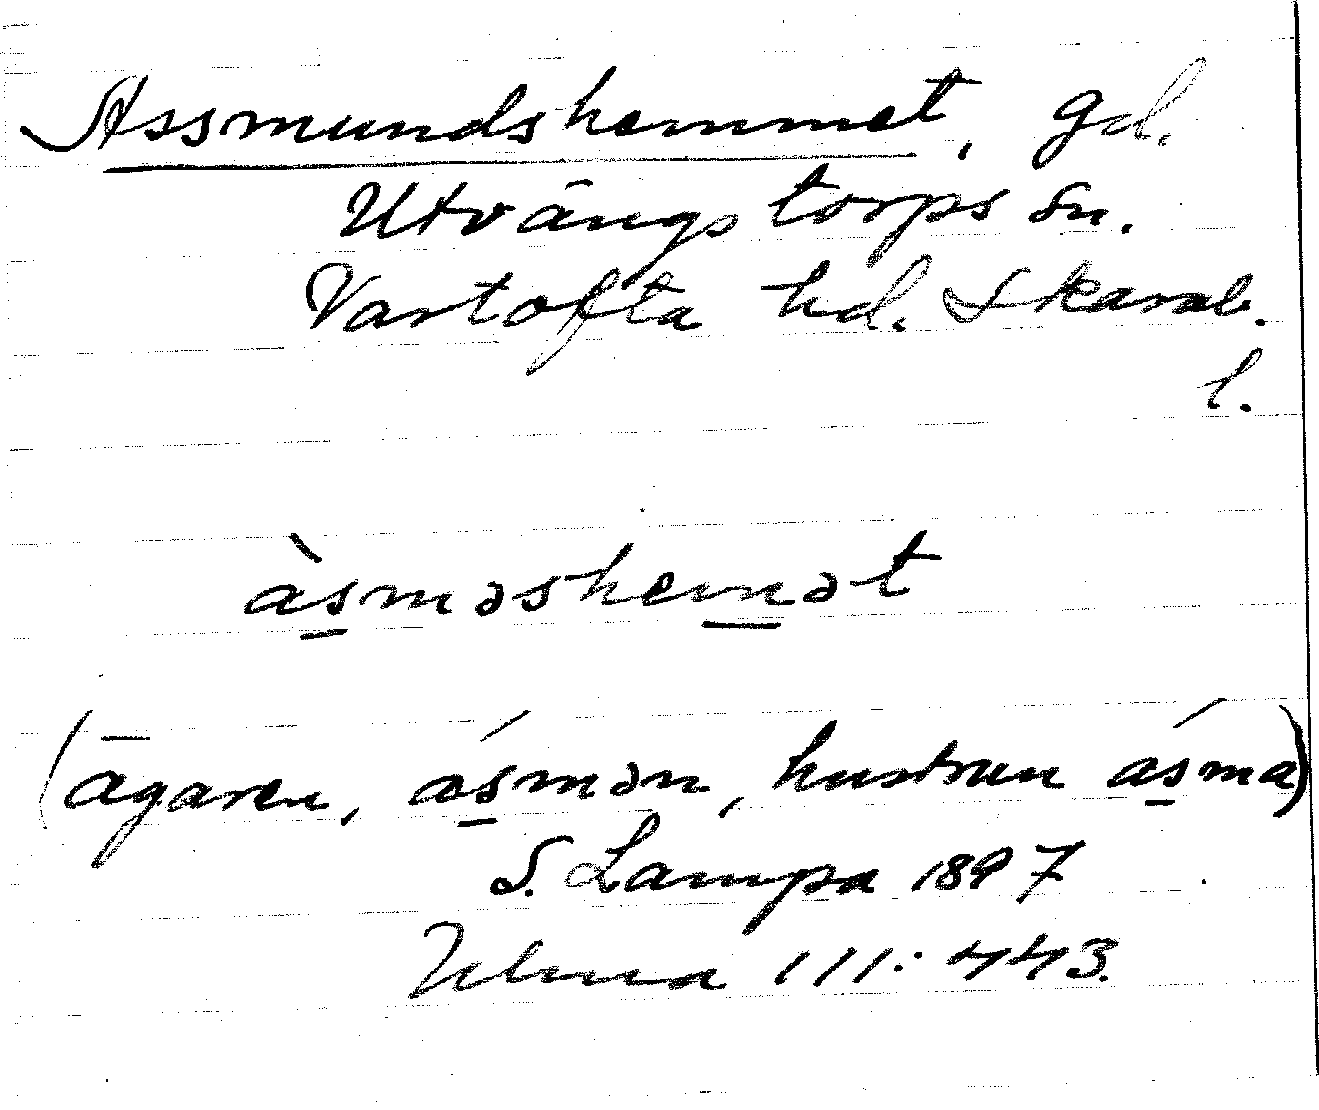 Assmundshemmet, gd.
Utvängstorps sn.
Vartofta hd. Skarab.
l.
às̱məshem̱ət
(ägaren, ás̱mən, hustrun ás̱ma)
S. Lampa 1897
Ulma 111:443.